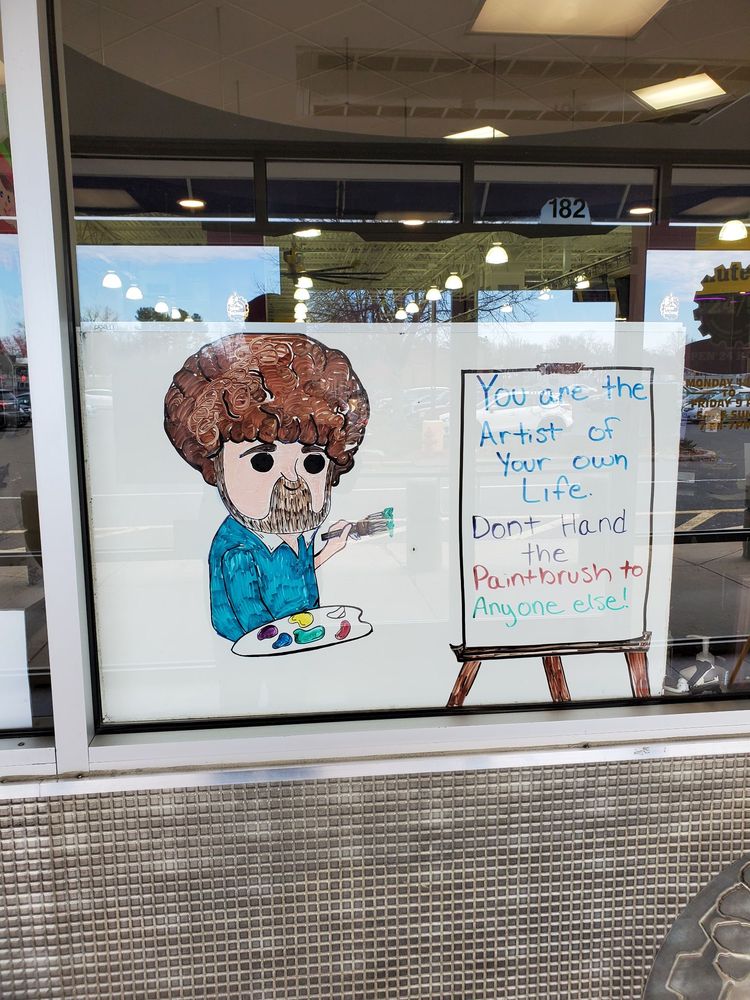 182
You are the
Artist of
Your own
Life.
Dont Hand
the
Paintbrush to
Anyone else!
24/7
MONDAY